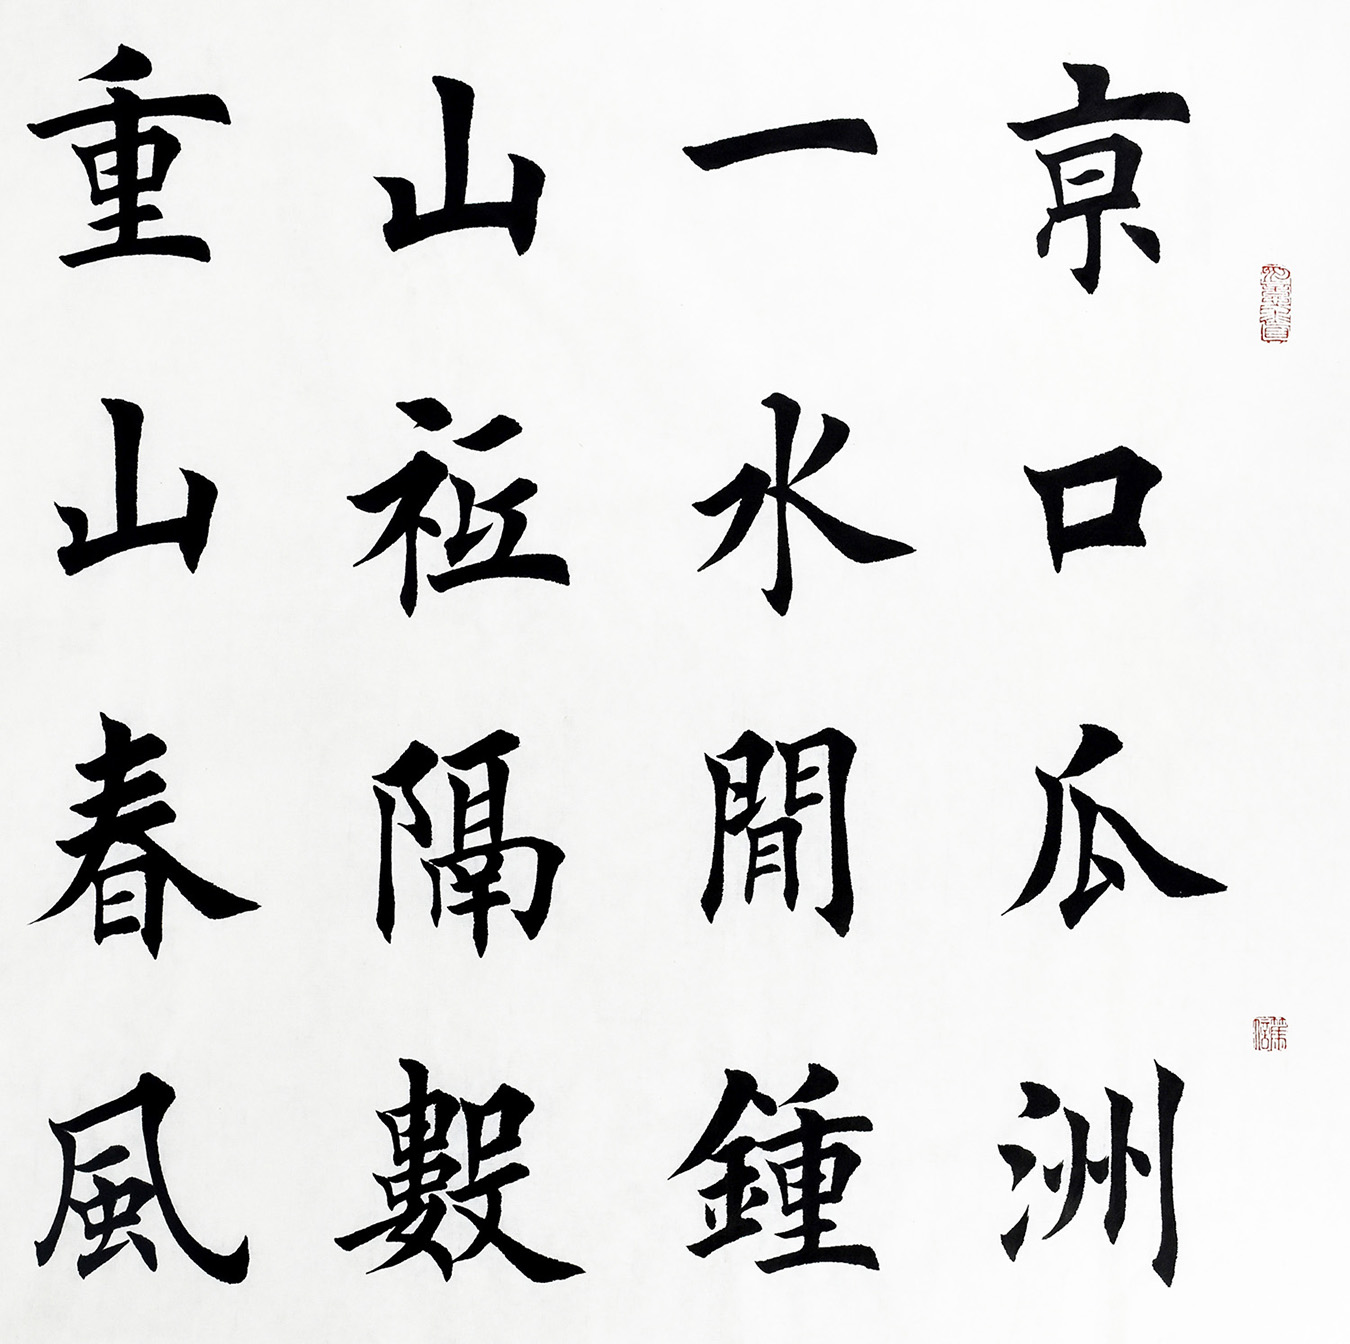 亰口瓜洲
一水閒鍾
山祗隔數
重山春風